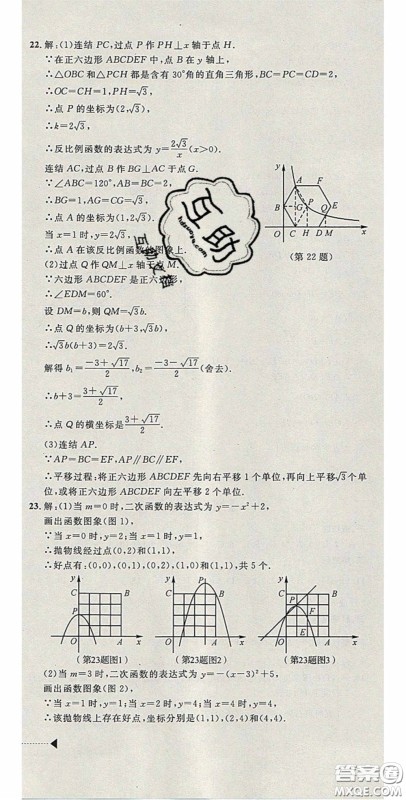 22. 解:(1)连结 PC,过点 P 作 PH⊥x 轴于点 H.
∵在正六边形 ABCDEF 中,点 B 在 y 轴上,
∴△OBC 和△PCH 都是含有 30°角的直角三角形,BC=PC=CD=2,
∴OC=CH=1,PH=√3,
∴点 P 的坐标为(2,√3),
∴k=2√3,
∴反比例函数的表达式为 y=2√3/x(x>0).
连结 AC,过点 B 作 BG⊥AC 于点 G.
∵∠ABC=120°,AB=BC=2,
∴BG=1,AG=CG=√3,
∴点 A 的坐标为(1,2√3).
当 x=1 时,y=2√3,
∴点 A 在该反比例函数的图象上.
(2)过点 Q 作 QM⊥x 轴于点 M.
∵六边形 ABCDEF 是正六边形,
∴∠EDM=60°.
设 DM=b,则 QM=√3b.
∴点 Q 的坐标为(b+3,√3b),
∴√3b(b+3)=2√3.
解得 b₁=(-3+√17)/2,b₂=(-3-√17)/2(舍去).
∴b+3=(3+√17)/2,
∴点 Q 的横坐标是(3+√17)/2.
(3)连结 AP.
∵AP=BC=EF,AP∥BC∥EF,
∴平移过程:将正六边形 ABCDEF 先向右平移 1 个单位,再向上平移√3个单
位,或将正六边形 ABCDEF 向左平移 2 个单位.
y
A
F
B
G
P
Q
E
O
C
H
D
M
x
(第 22 题)
23. 解:(1)当 m=0 时,二次函数的表达式为 y=-x²+2,
画出函数图象(图 1),
∵当 x=0 时,y=2;当 x=1 时,y=1;
∴抛物线经过点(0,2)和(1,1),
∴好点有:(0,0),(0,1),(0,2),(1,0)和(1,1),共 5 个.
y
C
B
P
O
A
x
(第23题图1)
y
P
C
B
O
A
x
(第23题图2)
y
C
B
P
F
E
O
A
x
(第23题图3)
(2)当 m=3 时,二次函数的表达式为 y=-(x-3)²+5,
画出函数图象(图 2),
∵当 x=1 时,y=1;当 x=2 时,y=4;当 x=4 时,y=4;
∴该抛物线上存在好点,坐标分别是(1,1),(2,4)和(4,4).
互助
互助文档
答案圈
MXQE.COM